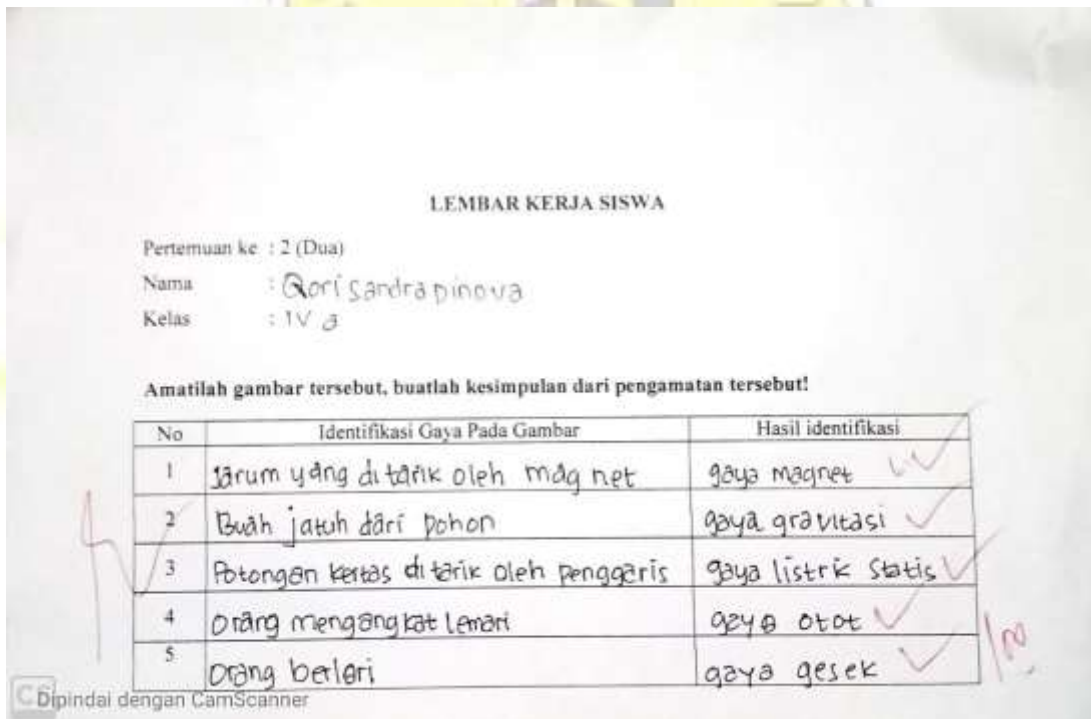 LEMBAR KERJA SISWA
Pertemuan ke : 2 (Dua)
Nama : Qori sandra pinova
Kelas : IV a
Amatilah gambar tersebut, buatlah kesimpulan dari pengamatan tersebut!
No Identifikasi Gaya Pada Gambar Hasil identifikasi
1 Jarum yang di tarik oleh mag net gaya magnet
2 Buah jatuh dari pohon gaya gravitasi
3 Potongan kertas di tarik oleh penggaris gaya listrik statis
4 orang mengangkat lemari gaya otot
5 orang berlari gaya gesek
100
CS Dipindai dengan CamScanner